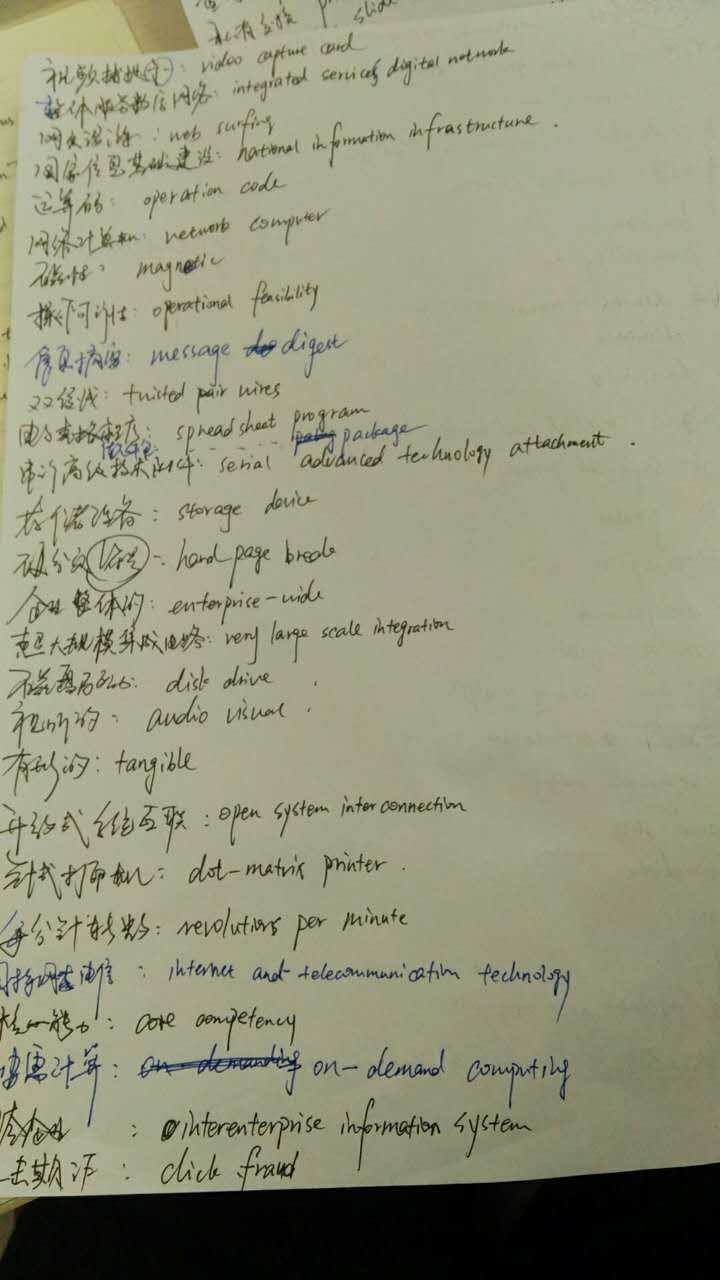 slide
视频捕捉卡: video capture card
整体服务数字网络: integrated services digital network
网页漫游: web surfing
国家信息基础建设: national information infrastructure.
运算码: operation code
网络计算机: network computer
磁性: magnetic
操作可行性: operational feasibility
信息摘要: message digest
双绞线: twisted pair wires
电子表格程序: spreadsheet program
软件包 package
串行高级技术附件: serial advanced technology attachment.
存储设备: storage device
硬分页: hard page break
企业整体的: enterprise-wide
超大规模集成电路: very large scale integration
磁盘驱动: disk drive
视听的: audio visual.
有形的: tangible
开放式系统互联: open system interconnection
针式打印机: dot-matrix printer.
每分钟转数: revolutions per minute
: internet and telecommunication technology
核心能力: core competency
按需计算: on-demand computing
: interenterprise information system
击欺诈: click fraud